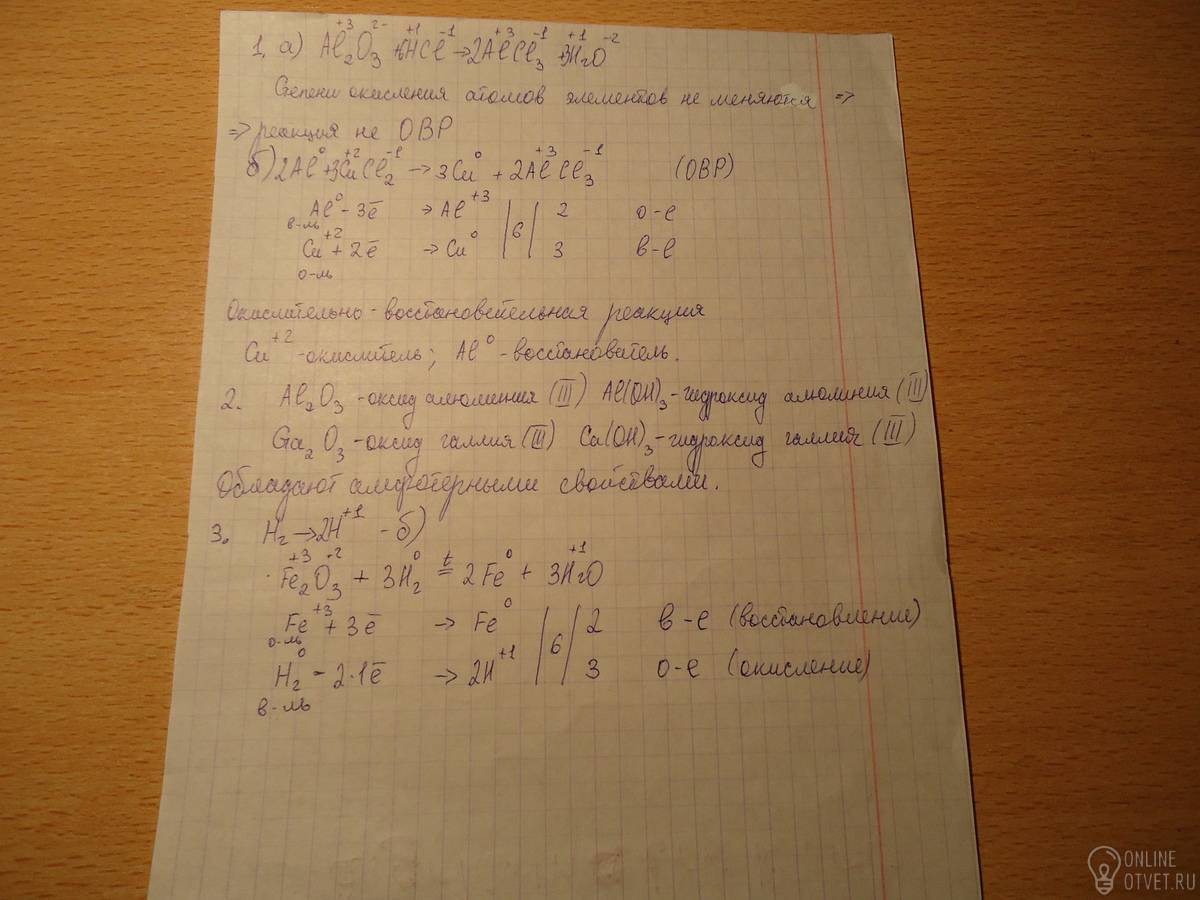 1. а) Al₂⁺³O₃²⁻ + 6H⁺¹Cl⁻¹ → 2Al⁺³Cl₃⁻¹ + 3H₂⁺¹O⁻²
Степени окисления атомов элементов не меняются =>
=> реакция не ОВР
б) 2Al⁰ + 3Cu⁺²Cl₂⁻¹ → 3Cu⁰ + 2Al⁺³Cl₃⁻¹ (ОВР)
Al⁰ - 3ē → Al⁺³ |6| 2 о-е
в-ль
Cu⁺² + 2ē → Cu⁰ 3 в-е
о-ль
Окислительно-восстановительная реакция
Cu⁺² - окислитель; Al⁰ - восстанователь.
2. Al₂O₃ - оксид алюминия (III) Al(OH)₃ - гидроксид алюминия (III)
Ga₂O₃ - оксид галлия (III) Ca(OH)₃ - гидроксид галлия (III)
Обладают амфотерными свойствами.
3. H₂ → 2H⁺¹ - б)
Fe₂⁺³O₃⁻² + 3H₂⁰ =ᵗ 2Fe⁰ + 3H₂⁺¹O
Fe⁺³ + 3ē → Fe⁰ |6| 2 в-е (восстановление)
о-ль
H₂⁰ - 2·1ē → 2H⁺¹ 3 о-е (окисление)
в-ль
ONLINE
OTVET.RU